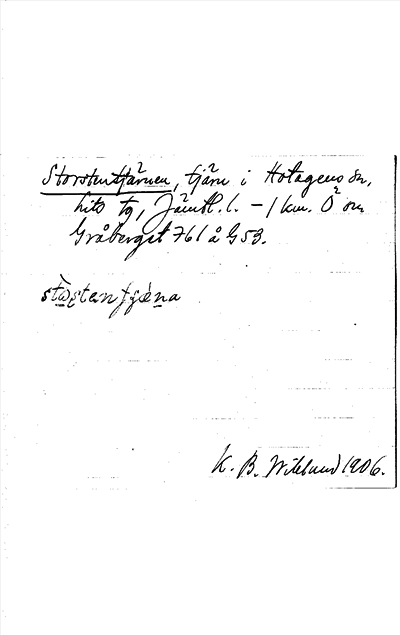 Storstentjärnen, tjärn i Hotagens sn,
Lits tg, Jämtl. l. – 1 km. Ö om
Gråberget 761 å G 53.
K. B. Wiklund 1906.